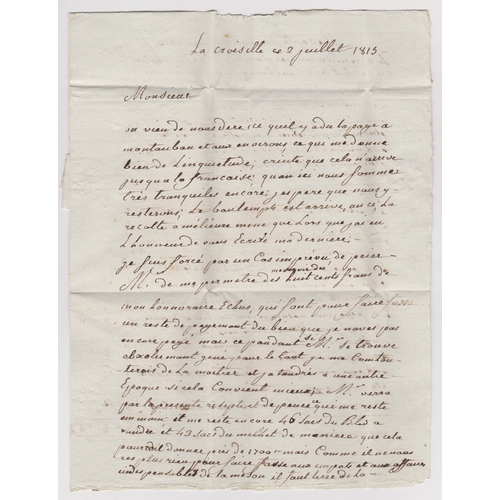 La croiselle ce 2 juillet 1815
Monsieur
on vien de nous dere ici quel y a du tapage a
montauban et aux environs ce que me donne
bien de Linquietude; creinte que cela n'arive
jusqu a la francaise: quan ici nous sommes
très tranquiles encore; jespere que nous y
resterons; Le beautemps est arrive, au ci La
recolte a mélieure mine que Lors que jai eu
L'honneur de vous Ecrite ma derniere;
je suis forcé par un Cas imprevu de prier
Mr. de me permetre des huit cents frans de
mon honoraire Echus, que sont pour faire
un reste de payement du bien que je naves pas
encore payé mais ce pandant si Mr. se trouve
absolument gené pour le tout je me Contan-
terois de La moitier et jatandres a une autre
Epoque si cela Convient mieux; Mr. verra
par la presente qui me reste
en main; et me reste encore 46 sacs du Bled a
vandre et 43 sacs du millet de maniere que cela
pourroit donner pres de 1700# mais Comme il ne nous
res plus rien pour faire fasse aux impots et aux affaires
indispensables de la meson il faut tirer de La